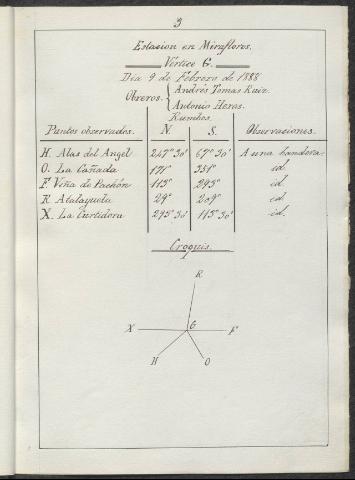 3
Estacion en Miraflores.
Vértice G.
Dia 9 de Febrero de 1888
Obreros. { Andrés Tomas Ruiz.
Antonio Heras.
Rumbos.
Puntos observados. N. S. Observaciones.
H. Alas del Angel 247° 30' 67° 30' A una bandera.
O. La Cañada 171° 351° id.
F. Viña de Pachón 113° 293° id.
R. Atalayuela 29° 209° id.
X. La Curtidora 293° 30' 113° 30' id.
Croquis.
R
X G F
H O